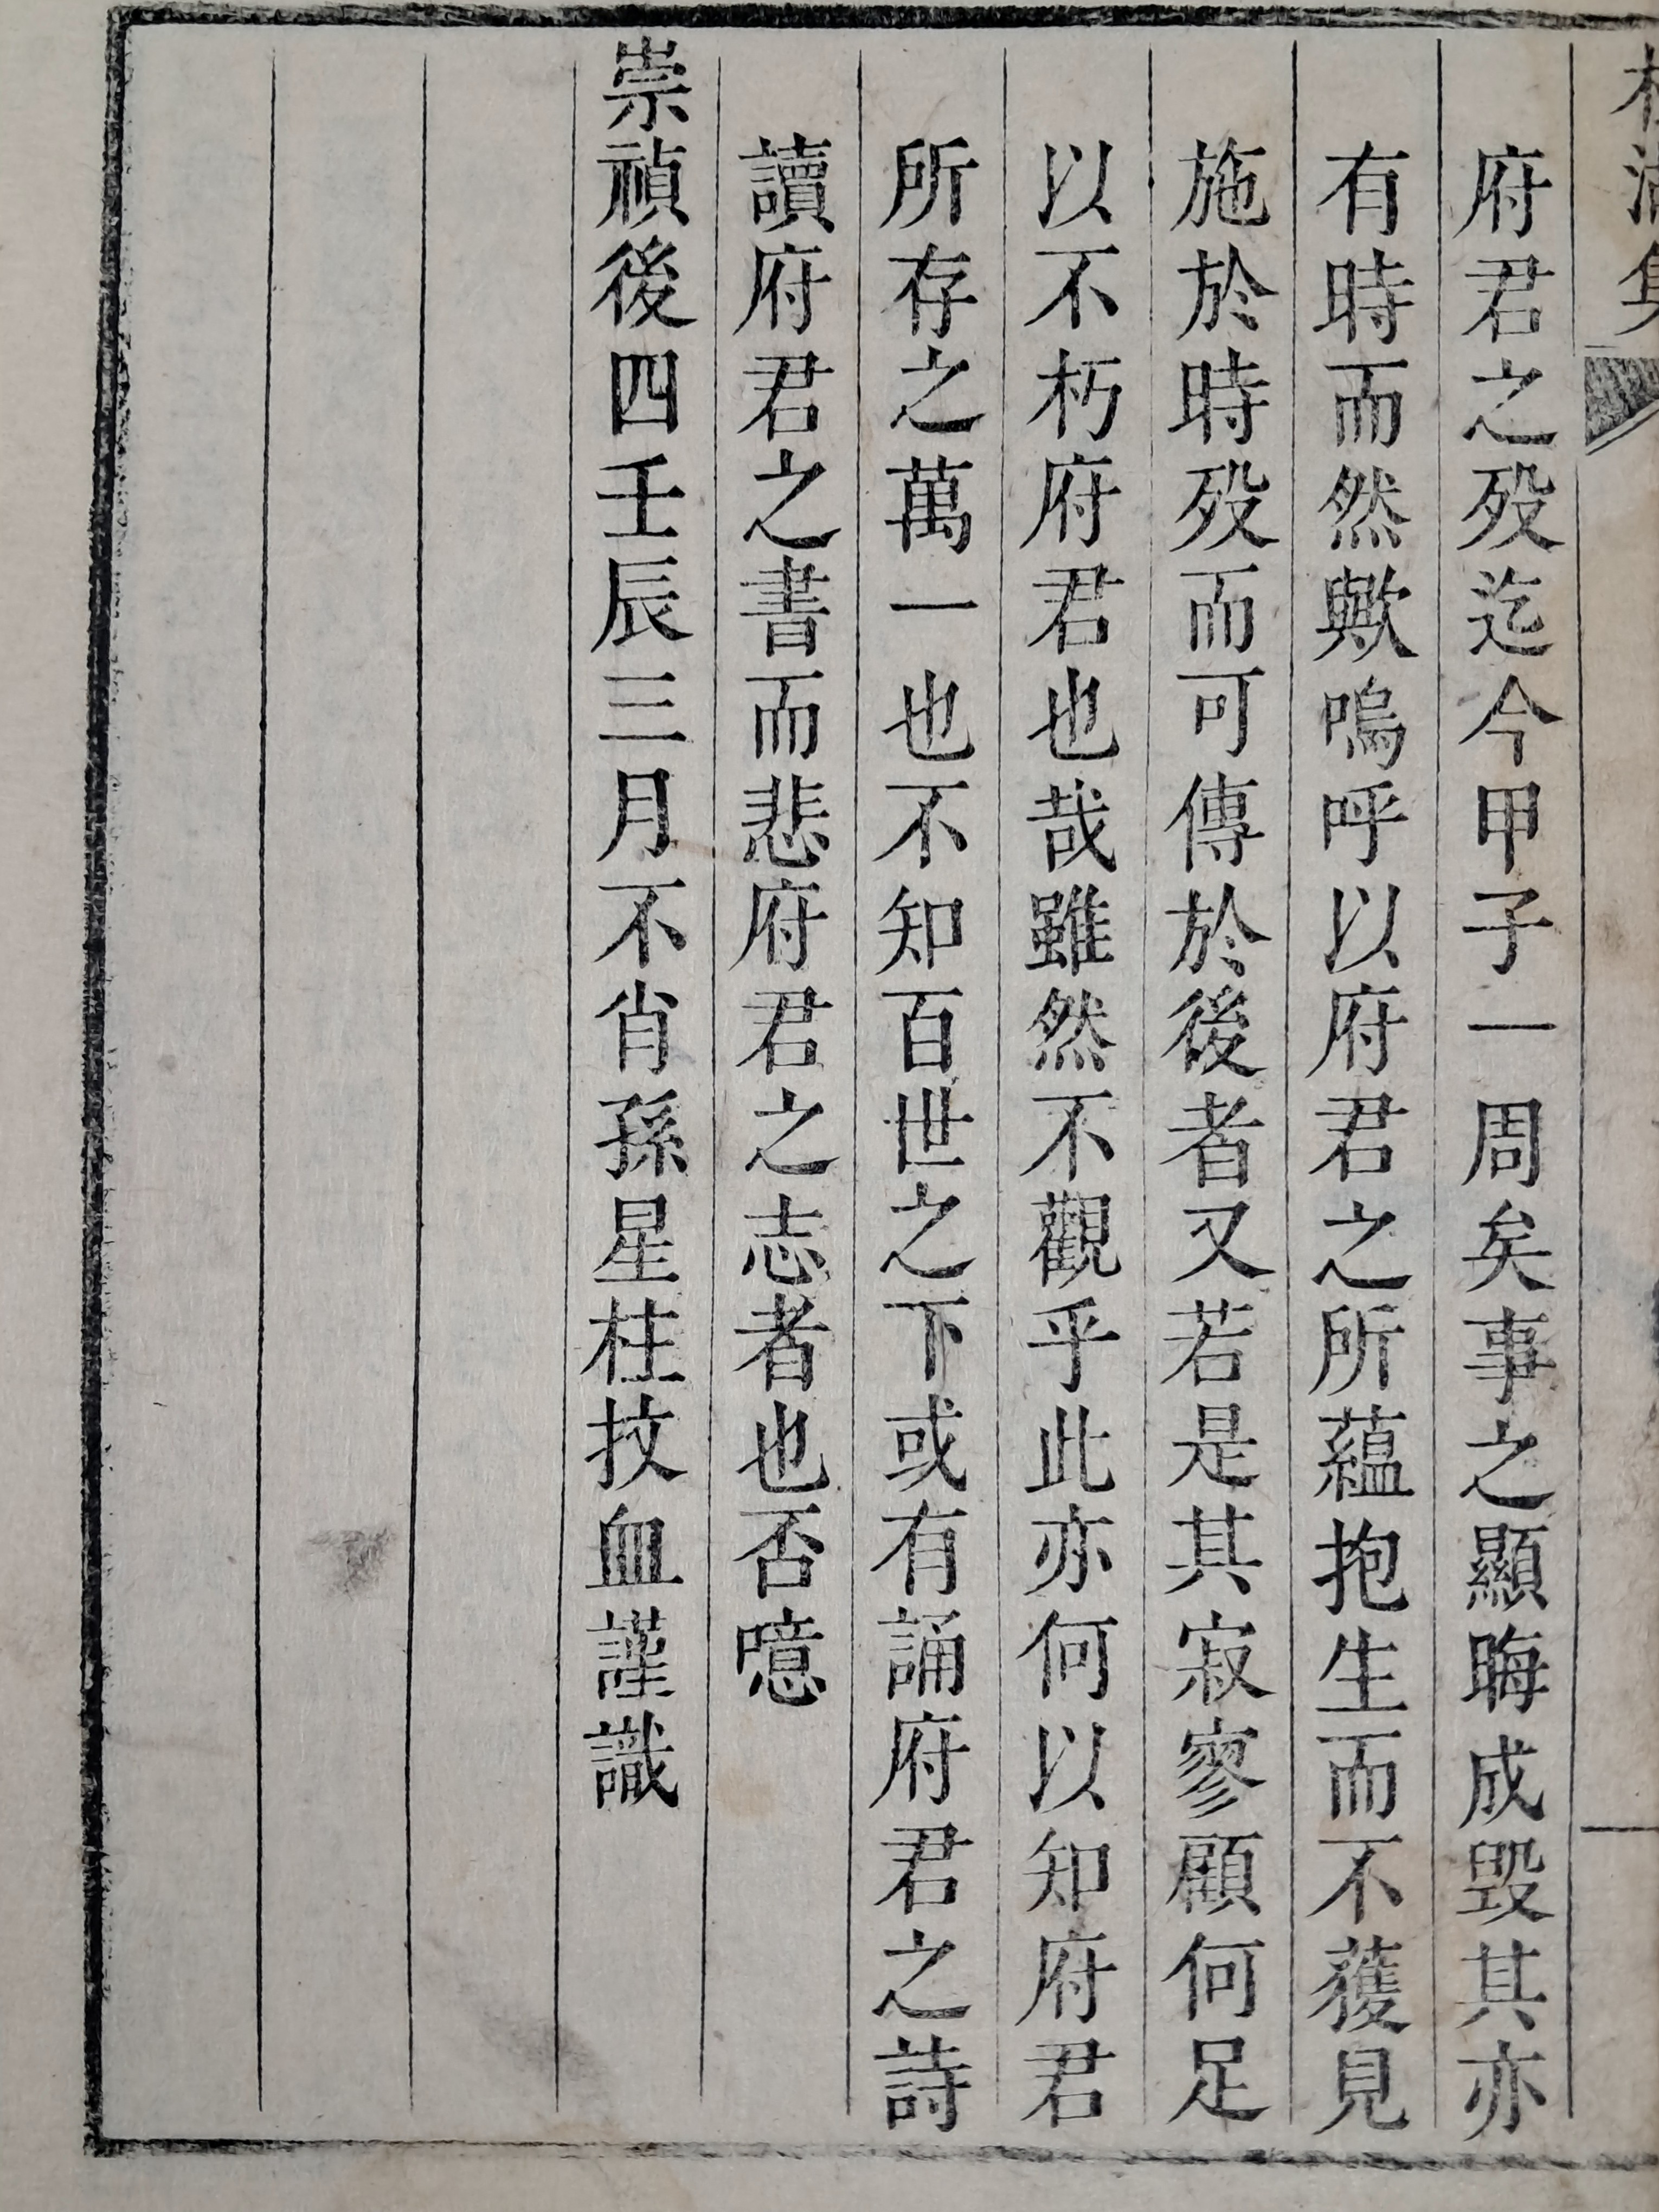 集
府君之歿迄今甲子一周矣事之顯晦成毀其亦
有時而然歟嗚呼以府君之所蘊抱生而不獲見
施於時歿而可傳於後者又若是其寂寥顧何足
以不朽府君也哉雖然不觀乎此亦何以知府君
所存之萬一也不知百世之下或有誦府君之詩
讀府君之書而悲府君之志者也否噫
崇禎後四壬辰三月不肖孫星柱抆血謹識